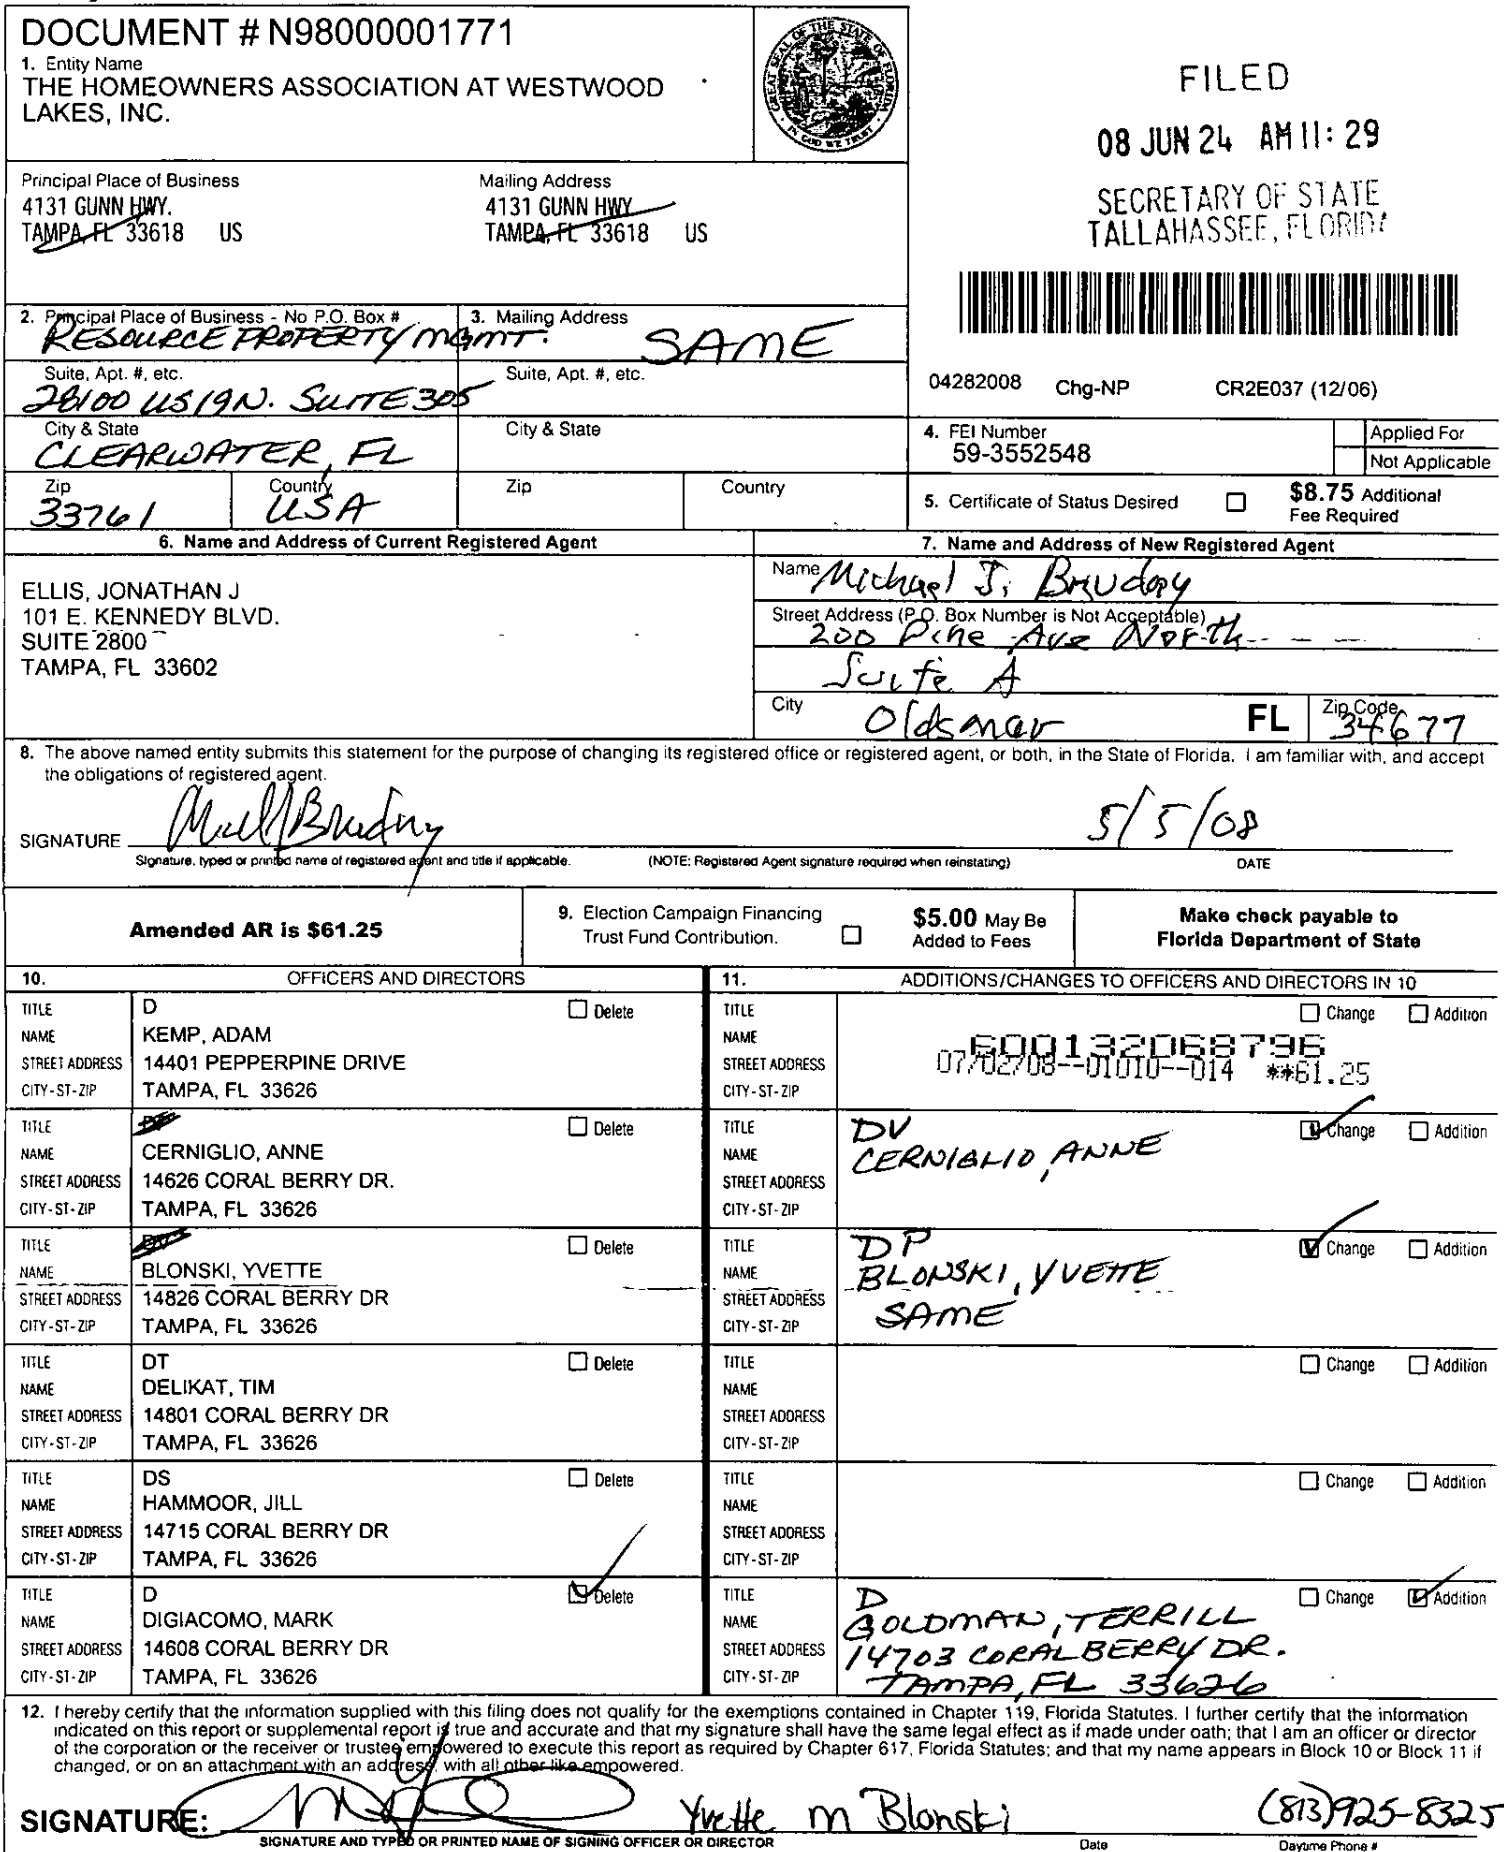 DOCUMENT # N98000001771
1. Entity Name
THE HOMEOWNERS ASSOCIATION AT WESTWOOD
LAKES, INC.
GREAT SEAL OF THE STATE OF FLORIDA
IN GOD WE TRUST
FILED
08 JUN 24 AM 11: 29
SECRETARY OF STATE
TALLAHASSEE, FLORIDA
Principal Place of Business
4131 GUNN HWY.
TAMPA, FL 33618 US
Mailing Address
4131 GUNN HWY
TAMPA, FL 33618 US
2. Principal Place of Business - No P.O. Box #
RESOURCE PROPERTY MGMT.
3. Mailing Address
SAME
Suite, Apt. #, etc.
28100 US 19 N. SUITE 305
Suite, Apt. #, etc.
City & State
CLEARWATER, FL
City & State
Zip
33761
Country
USA
Zip
Country
04282008 Chg-NP CR2E037 (12/06)
4. FEI Number
59-3552548
Applied For
Not Applicable
5. Certificate of Status Desired
$8.75 Additional
Fee Required
6. Name and Address of Current Registered Agent
ELLIS, JONATHAN J
101 E. KENNEDY BLVD.
SUITE 2800
TAMPA, FL 33602
7. Name and Address of New Registered Agent
Name Michael J. Brudny
Street Address (P.O. Box Number is Not Acceptable)
200 Pine Ave North
Suite A
City Oldsmar FL Zip Code 34677
8. The above named entity submits this statement for the purpose of changing its registered office or registered agent, or both, in the State of Florida. I am familiar with, and accept
the obligations of registered agent.
SIGNATURE
5/5/08
Signature, typed or printed name of registered agent and title if applicable. (NOTE: Registered Agent signature required when reinstating) DATE
Amended AR is $61.25
9. Election Campaign Financing
Trust Fund Contribution.
$5.00 May Be
Added to Fees
Make check payable to
Florida Department of State
10. OFFICERS AND DIRECTORS
11. ADDITIONS/CHANGES TO OFFICERS AND DIRECTORS IN 10
TITLE D Delete
NAME KEMP, ADAM
STREET ADDRESS 14401 PEPPERPINE DRIVE
CITY-ST-ZIP TAMPA, FL 33626
TITLE Change Addition
NAME
600132068796
STREET ADDRESS 07/02/08--01010--014 **61.25
CITY-ST-ZIP
TITLE Delete
NAME CERNIGLIO, ANNE
STREET ADDRESS 14626 CORAL BERRY DR.
CITY-ST-ZIP TAMPA, FL 33626
TITLE DV Change Addition
NAME CERNIGLIO, ANNE
STREET ADDRESS
CITY-ST-ZIP
TITLE DV Delete
NAME BLONSKI, YVETTE
STREET ADDRESS 14826 CORAL BERRY DR
CITY-ST-ZIP TAMPA, FL 33626
TITLE DP Change Addition
NAME BLONSKI, YVETTE
STREET ADDRESS SAME
CITY-ST-ZIP
TITLE DT Delete
NAME DELIKAT, TIM
STREET ADDRESS 14801 CORAL BERRY DR
CITY-ST-ZIP TAMPA, FL 33626
TITLE Change Addition
NAME
STREET ADDRESS
CITY-ST-ZIP
TITLE DS Delete
NAME HAMMOOR, JILL
STREET ADDRESS 14715 CORAL BERRY DR
CITY-ST-ZIP TAMPA, FL 33626
TITLE Change Addition
NAME
STREET ADDRESS
CITY-ST-ZIP
TITLE D Delete
NAME DIGIACOMO, MARK
STREET ADDRESS 14608 CORAL BERRY DR
CITY-ST-ZIP TAMPA, FL 33626
TITLE D Change Addition
NAME GOLDMAN, TERRILL
STREET ADDRESS 14703 CORAL BERRY DR.
CITY-ST-ZIP TAMPA, FL 33626
12. I hereby certify that the information supplied with this filing does not qualify for the exemptions contained in Chapter 119, Florida Statutes. I further certify that the information
indicated on this report or supplemental report is true and accurate and that my signature shall have the same legal effect as if made under oath; that I am an officer or director
of the corporation or the receiver or trustee empowered to execute this report as required by Chapter 617, Florida Statutes; and that my name appears in Block 10 or Block 11 if
changed, or on an attachment with an address, with all other like empowered.
SIGNATURE: Yvette M Blonski (813)925-8325
SIGNATURE AND TYPED OR PRINTED NAME OF SIGNING OFFICER OR DIRECTOR Date Daytime Phone #